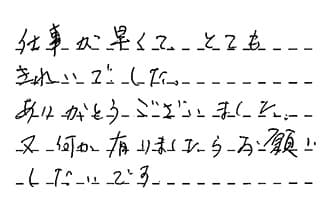 仕事が早くて、とても
きれいでした。
ありがとうございました。
又、何か有りましたらお願い
したいです